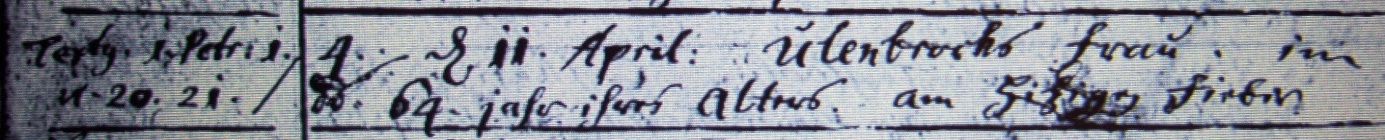 Text. 1. Petri 1. 4. d 11. April: Ulenbrocks frau. im
v. 20. 21. / 64. jahr ihres Alters. am hitzigen fieber